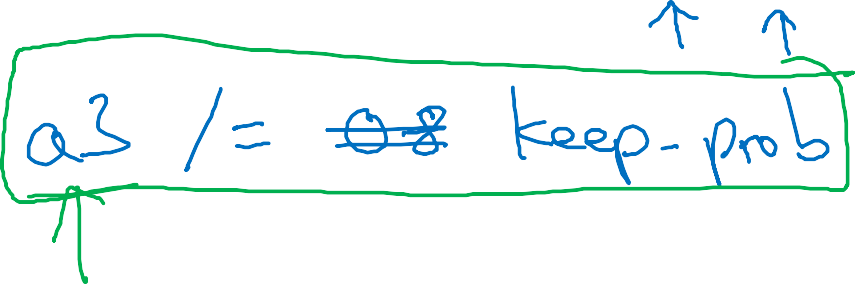 a3 /= 0.8 keep-prob